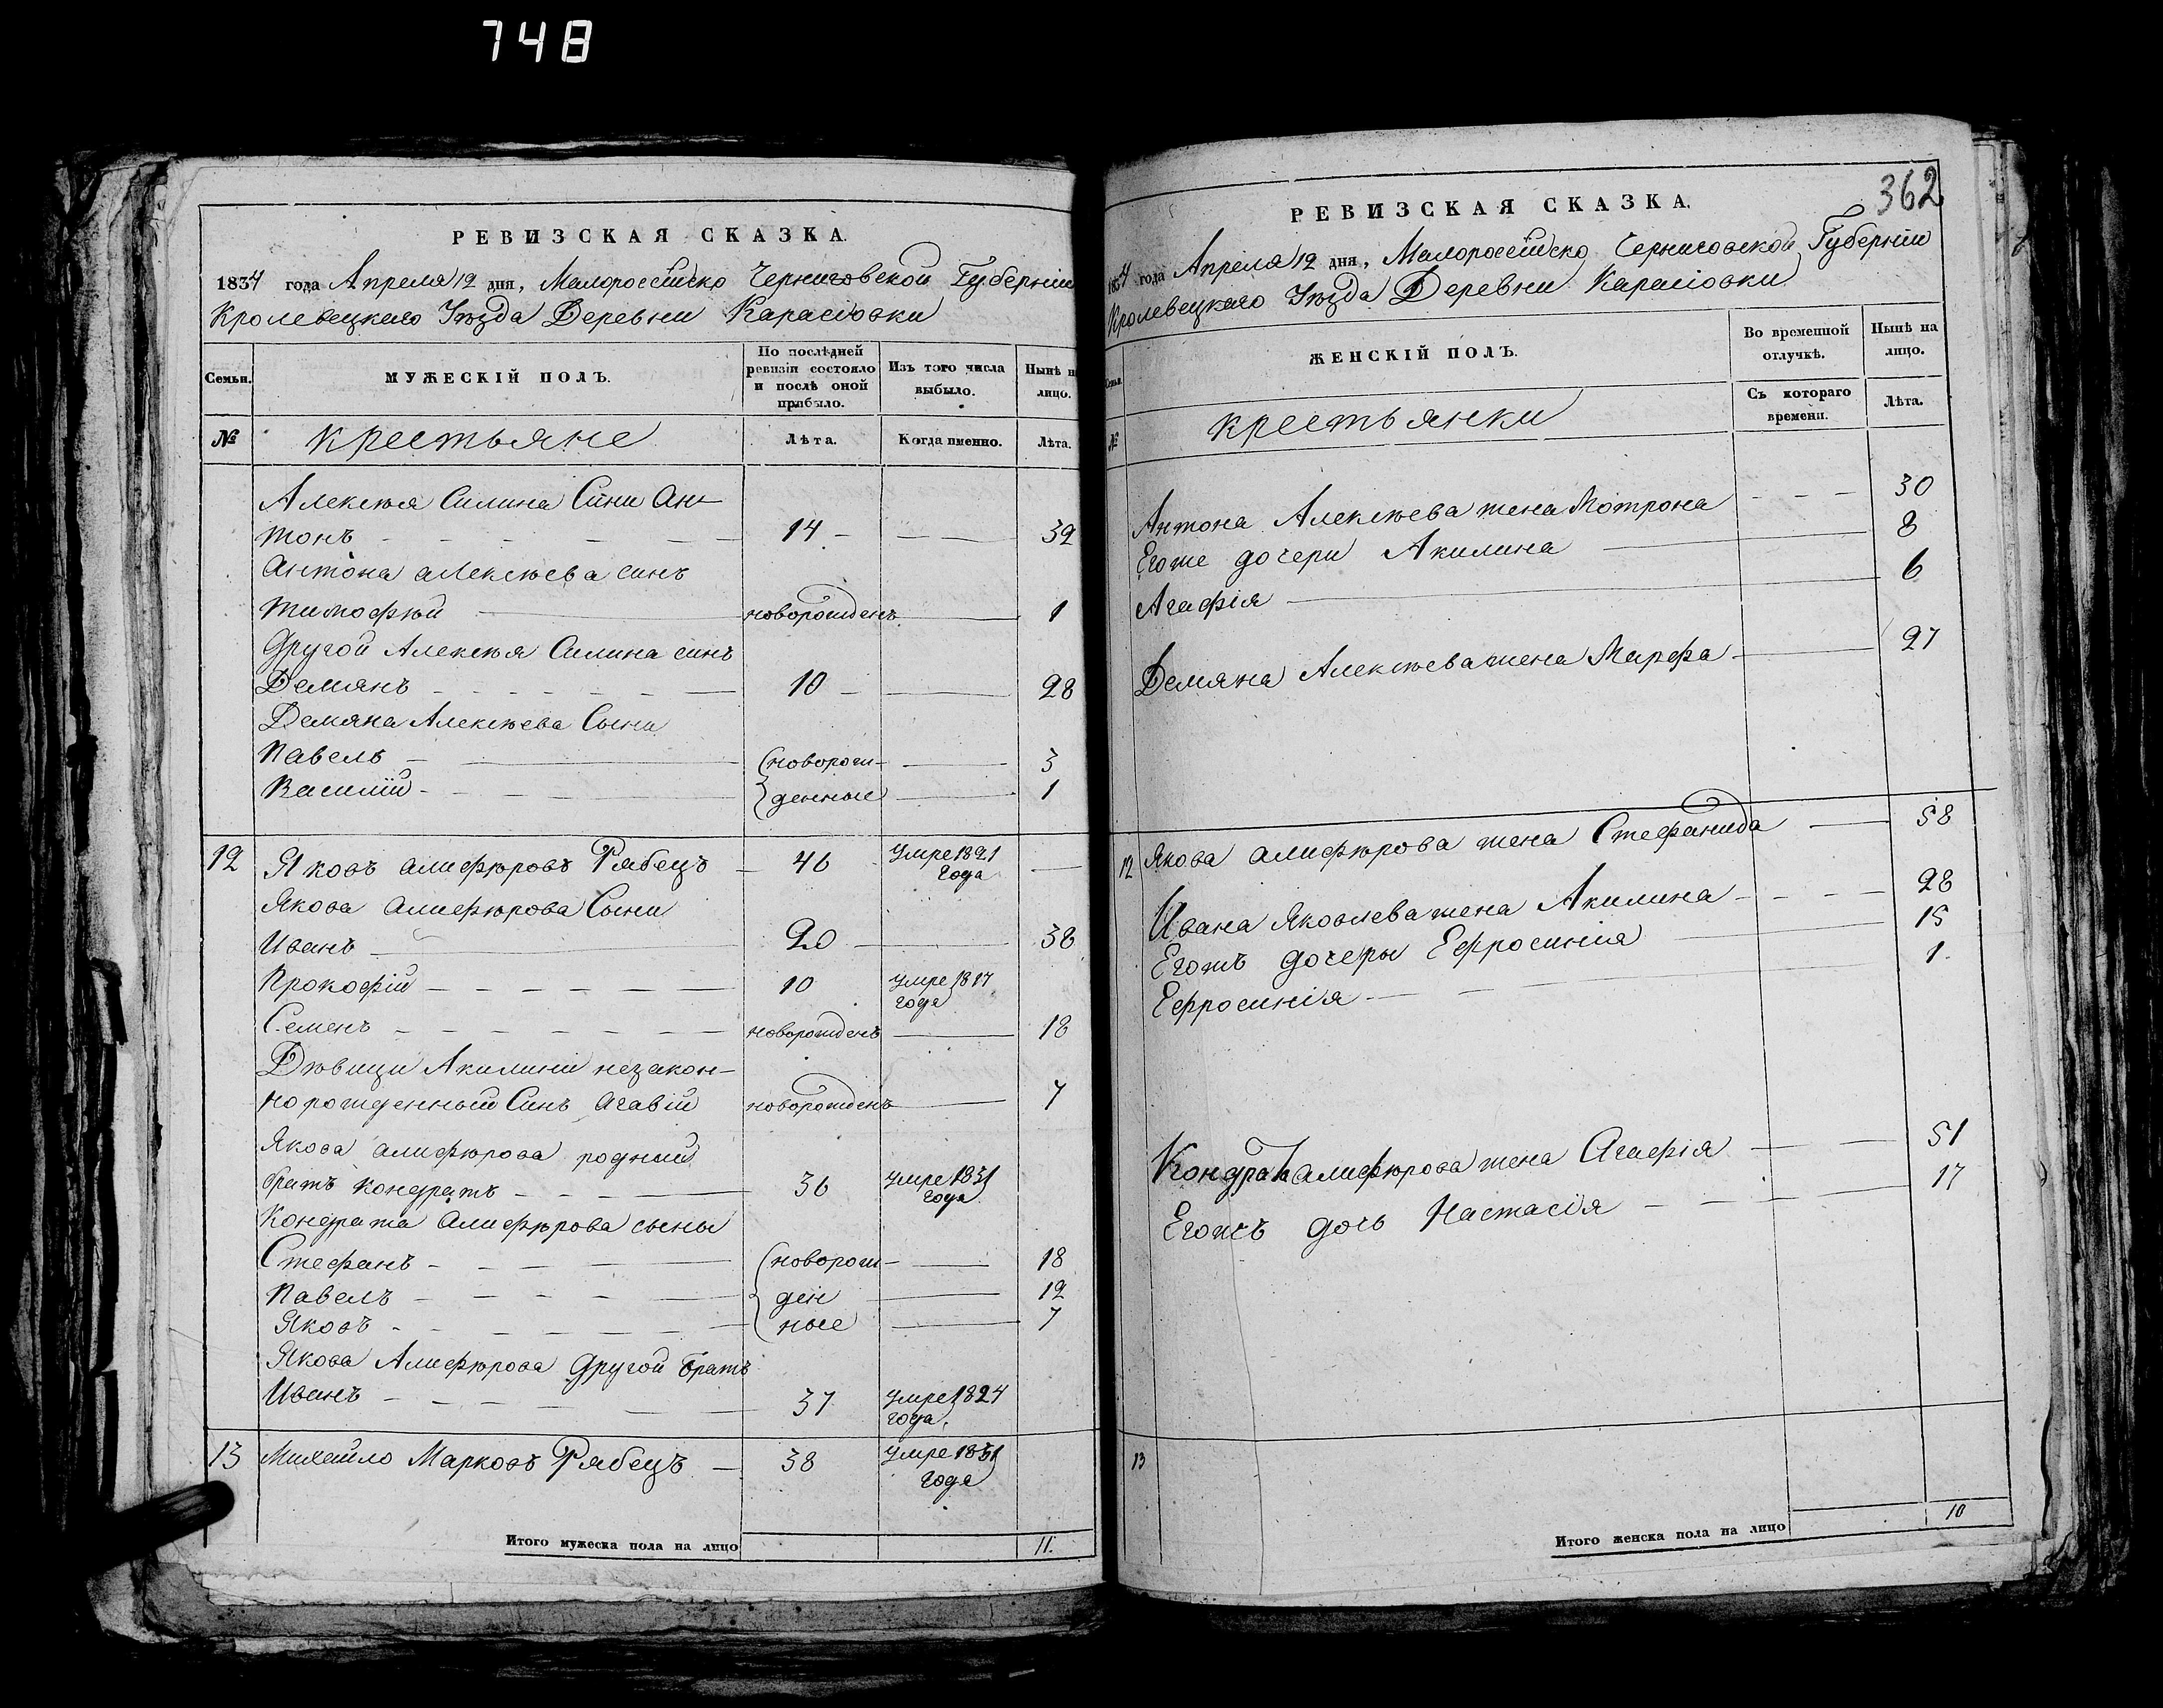 748
РЕВИЗСКАЯ СКАЗКА.
1834 года Апреля 12 дня, Малороссійско Черниговской Губерніи
Кролевецкаго Уѣзда Деревни Карасіовки
Семьи.
МУЖЕСКІЙ ПОЛЪ.
По послѣдней ревизіи состояло и послѣ оной прибыло.
Изъ того числа выбыло.
Нынѣ на лицо.
№ крестьяне Лѣта. Когда именно. Лѣта.
Алексѣя Силина Сини Ан-
тонъ 14 39
Антона алексѣева синъ
тимофѣй новорожденъ 1
другой Алексѣя Силина синъ
Демянъ 10 28
Демяна Алексѣева Сыни
Павелъ новорож- 3
Василій денные 1
12 Яковъ алифѣровъ Рябецъ 46 умре 1821 года
Якова алифѣрова Сыни
Иванъ 20 38
Прокофій 10 умре 1817 года
Семенъ новорожденъ 18
Дѣвици Акилини незакон-
норожденный Синъ Агавій новорожденъ 7
Якова алифѣрова родный
братъ Кондратъ 36 умре 1831 года
Кондрата алифѣрова сыны
Стефанъ новорож- 18
Павелъ ден 12
Яковъ ные 7
Якова Алифѣрова другой братъ
Иванъ 37 умре 1824 года.
13 Михайло Марковъ Рябецъ 38 умре 1831 года
Итого мужеска пола на лицо 11.
362
РЕВИЗСКАЯ СКАЗКА.
1834 года Апреля 12 дня, Малороссійско Черниговской Губерніи
Кролевецкаго Уѣзда Деревни Карасіовки
Семьи.
ЖЕНСКІЙ ПОЛЪ.
Во временной отлучкѣ.
Нынѣ на лицо.
№ крестьянки Съ котораго времени. Лѣта.
Антона Алексѣева жена Мотрона 30
Егоже дочери Акилина 8
Агафія 6
Демяна Алексѣева жена Марфа 27
12 Якова алифѣрова жена Стефанида 58
Ивана Яковлева жена Акилина 28
Егожъ дочеры Ефросинія 15
Ефросинія 1.
Кондрата алифѣрова жена Агафія 51
Егожъ дочь Настасія 17
13
Итого женска пола на лицо 10